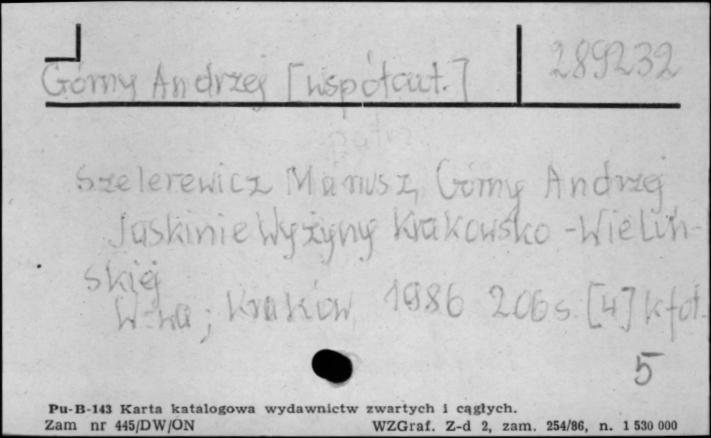 Górny Andrzej [współaut.]
289232
patrz
Szelerewicz Mariusz, Górny Andrzej
Jaskinie Wyżyny Krakowsko-Wieluń-
skiej
W-wa; Kraków 1986 206 s. [4] k fot.
5
Pu-B-143 Karta katalogowa wydawnictw zwartych i cągłych.
Zam nr 445/DW/ON WZGraf. Z-d 2, zam. 254/86, n. 1 530 000